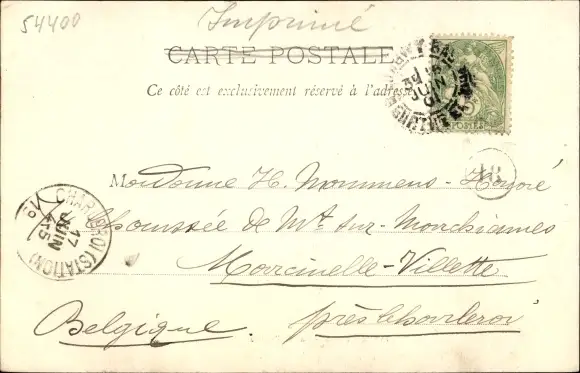 54400
Imprimé
CARTE POSTALE
Ce côté est exclusivement réservé à l'adresse
JUIN
01
POSTES
Madame H. Mommens-Honoré
Chaussée de Mt sur Marchiennes
Marcinelle-Villette
Belgique. près Charleroi
CHARLEROI (STATION)
17
JUIN